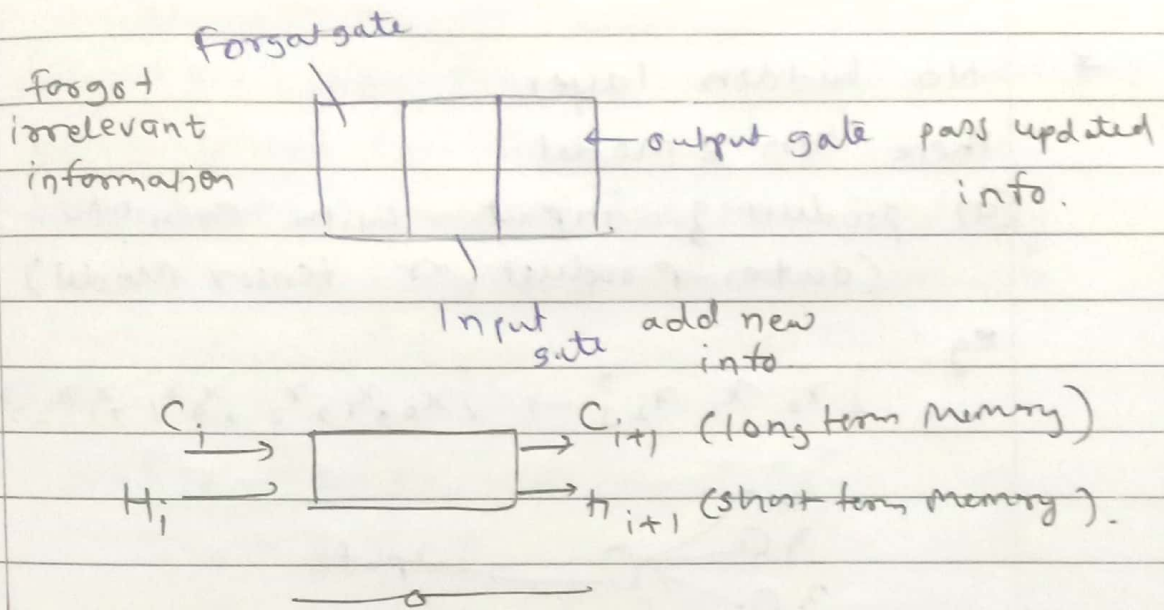 Forgat gate
forgot
irrelevant
information
output gate pass updated
info.
Input add new
gate info.
Ci Ci+1 (long term memory)
Hi hi+1 (short term memory).